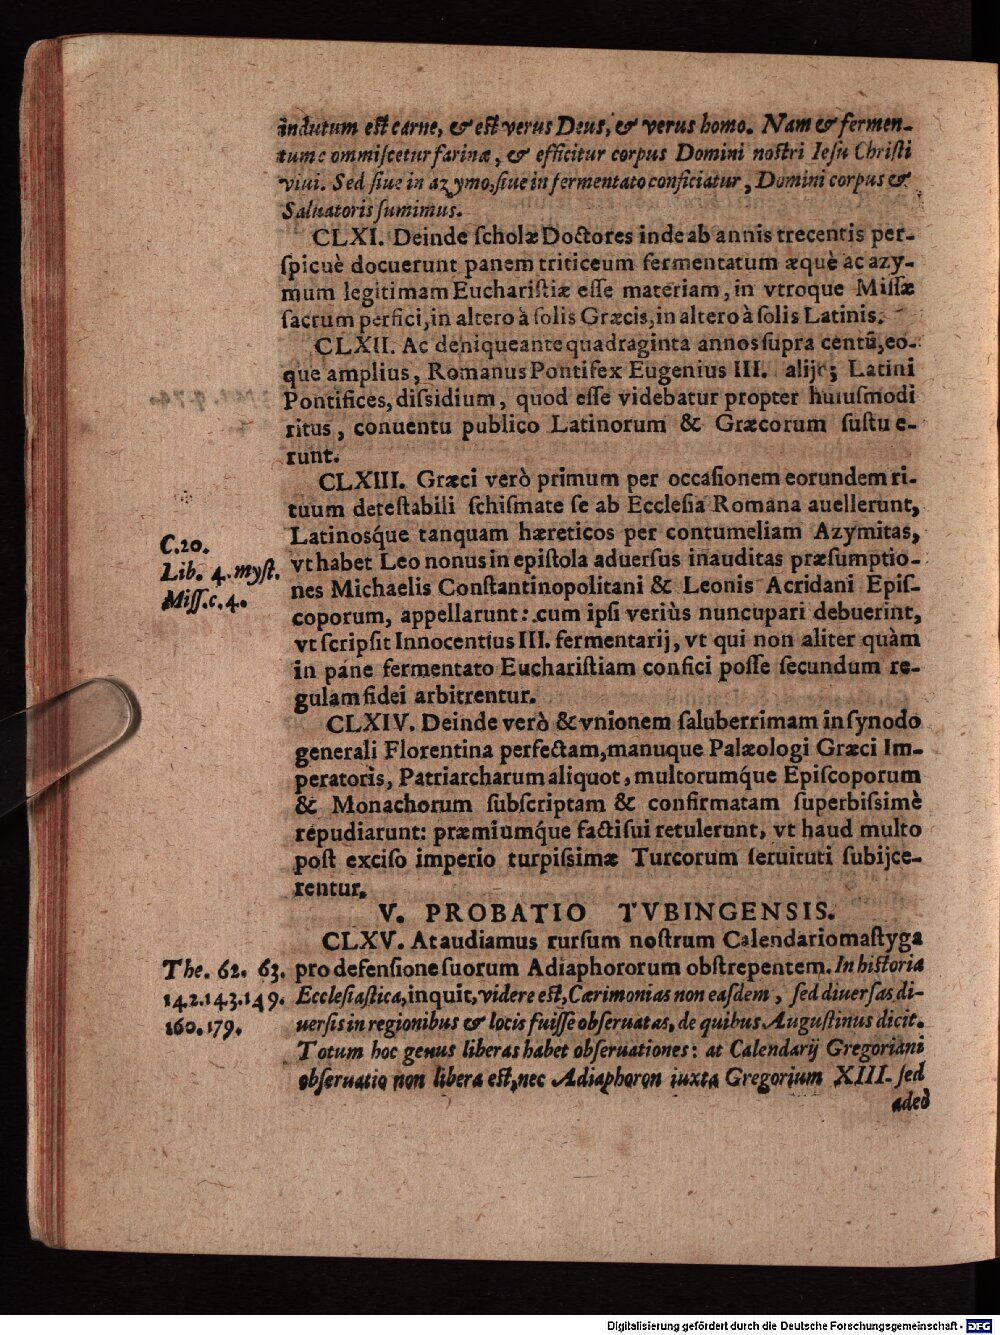 indutum eſt carne, & eſt verus Deus, & verus homo. Nam & fermen-
tum commiſcetur farinæ, & efficitur corpus Domini noſtri Ieſu Chriſti
viui. Sed ſiue in azymo, ſiue in fermentato conficiatur, Domini corpus &
Saluatoris ſumimus.
CLXI. Deinde ſcholæ Doctores inde ab annis trecentis per-
ſpicuè docuerunt panem triticeum fermentatum æquè ac azy-
mum legitimam Euchariſtiæ eſſe materiam, in vtroque Miſſæ
ſacrum perfici, in altero à ſolis Græcis, in altero à ſolis Latinis.
CLXII. Ac denique ante quadraginta annos ſupra centũ, eo-
que amplius, Romanus Pontifex Eugenius III. alijq; Latini
Pontifices, diſsidium, quod eſſe videbatur propter huiuſmodi
ritus, conuentu publico Latinorum & Græcorum ſuſtue-
runt.
CLXIII. Græci verò primum per occaſionem eorundem ri-
tuum deteſtabili ſchiſmate ſe ab Eccleſia Romana auellerunt,
Latinosq́ue tanquam hæreticos per contumeliam Azymitas,
vt habet Leo nonus in epiſtola aduerſus inauditas præſumptio-
nes Michaelis Conſtantinopolitani & Leonis Acridani Epiſ-
coporum, appellarunt: cum ipſi veriùs nuncupari debuerint,
vt ſcripſit Innocentius III. fermentarij, vt qui non aliter quàm
in pane fermentato Euchariſtiam confici poſſe ſecundum re-
gulam fidei arbitrentur.
C. 20.
Lib. 4. myſt.
Miſſ. c. 4.
CLXIV. Deinde verò & vnionem ſaluberrimam in ſynodo
generali Florentina perfectam, manuque Palæologi Græci Im-
peratoris, Patriarcharum aliquot, multorumq́ue Epiſcoporum
& Monachorum ſubſcriptam & confirmatam ſuperbiſsimè
repudiarunt: præmiumq́ue facti ſui retulerunt, vt haud multo
poſt exciſo imperio turpiſsimæ Turcorum ſeruituti ſubijce-
rentur.
V. PROBATIO TVBINGENSIS.
CLXV. At audiamus rurſum noſtrum Calendariomaſtyga
pro defenſione ſuorum Adiaphororum obſtrepentem. In hiſtoria
Eccleſiaſtica, inquit, videre eſt, Cærimonias non eaſdem, ſed diuerſas di-
uerſis in regionibus & locis fuiſſe obſeruatas, de quibus Auguſtinus dicit.
Totum hoc genus liberas habet obſeruationes: at Calendarij Gregoriani
obſeruatio non libera eſt, nec Adiaphoron iuxta Gregorium XIII. ſed
adeò
The. 62. 63.
142. 143. 149.
160. 179.
Digitalisierung gefördert durch die Deutsche Forschungsgemeinschaft - DFG